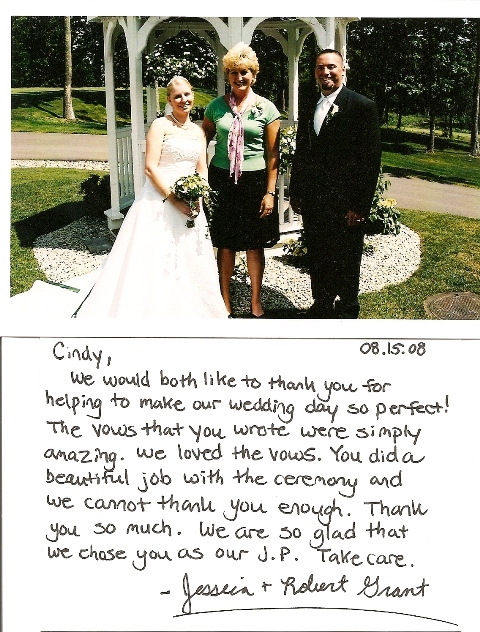 Cindy, 08.15.08
We would both like to thank you for
helping to make our wedding day so perfect!
The vows that you wrote were simply
amazing. We loved the vows. You did a
beautiful job with the ceremony and
we cannot thank you enough. Thank
you so much. We are so glad that
we chose you as our J.P. Take care.
- Jessica + Robert Grant